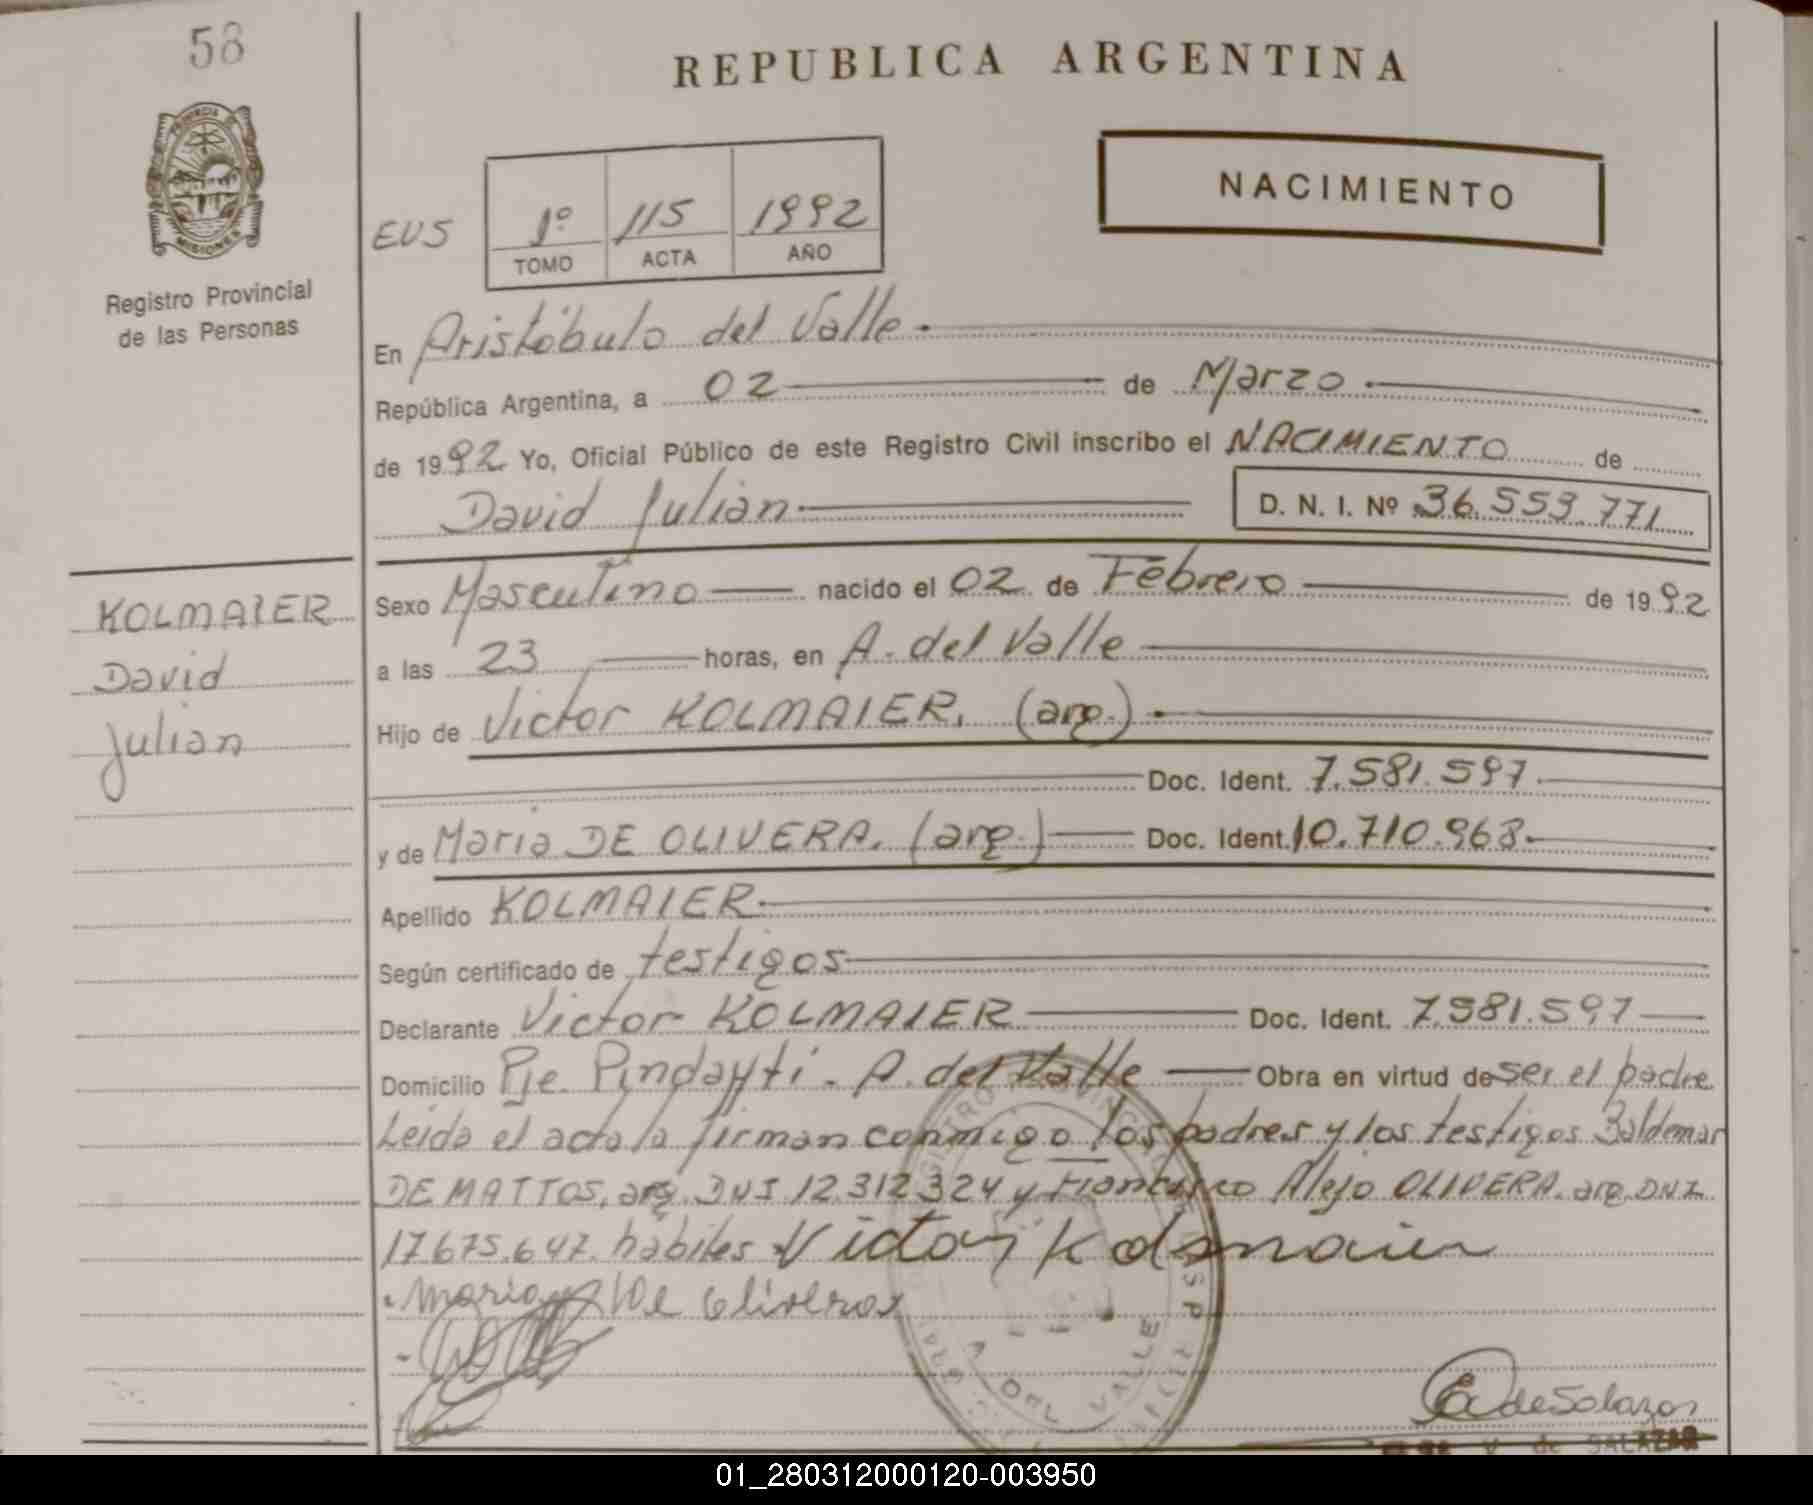 58
REPUBLICA ARGENTINA
PROVINCIA DE
MISIONES
Registro Provincial
de las Personas
EUS
1º 115 1992
TOMO ACTA AÑO
NACIMIENTO
En Aristóbulo del Valle.
República Argentina, a 02 de Marzo.
de 1992 Yo, Oficial Público de este Registro Civil inscribo el NACIMIENTO de
David Julian D. N. I. Nº 36.553.771
KOLMAIER
David
Julian
Sexo Masculino nacido el 02 de Febrero de 1992
a las 23 horas, en A. del Valle
Hijo de Victor KOLMAIER. (arg.).
Doc. Ident. 7.581.597
y de Maria DE OLIVERA. (arg.) Doc. Ident. 10.710.968
Apellido KOLMAIER.
Según certificado de testigos
Declarante Victor KOLMAIER Doc. Ident. 7.581.597
Domicilio Pje. Pindayti. A. del Valle Obra en virtud de ser el padre
Leida el acta la firman conmigo los padres y los testigos Baldemar
DE MATTOS, arg. DNI 12.312.324 y Alejo OLIVERA. arg. DNI
17.675.647. habiles Victor Kolmaier
Maria De Oliveira
A DEL VALLE
de Salazar
V. de SALAZAR
01_280312000120-003950